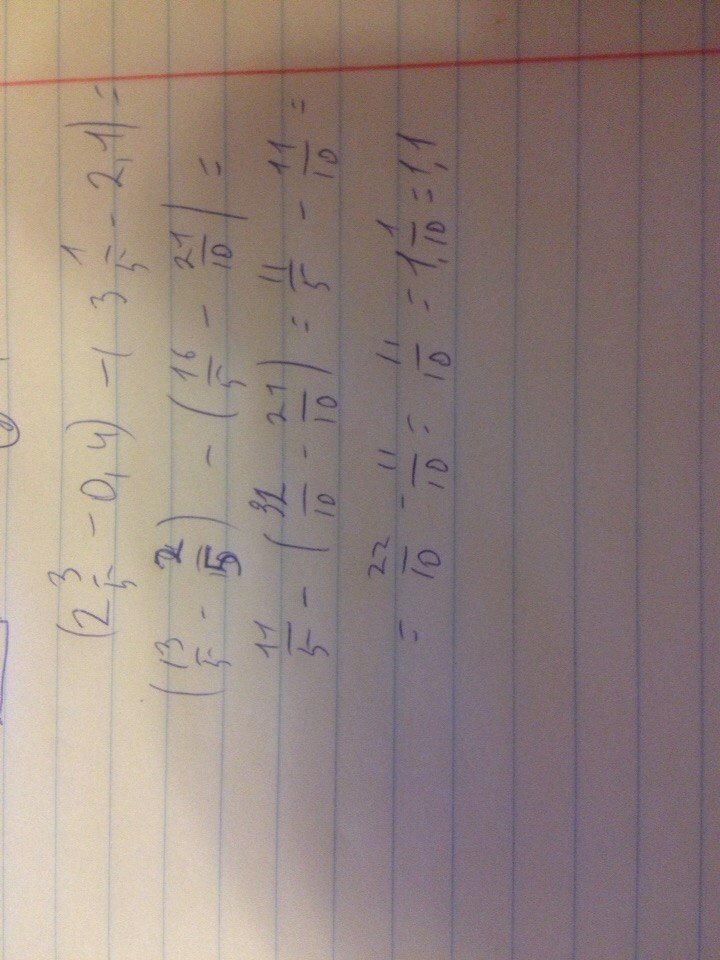 (2 3/5 - 0,4) - (3 1/5 - 2,1) =
(13/5 - 2/5) - (16/5 - 21/10) =
11/5 - (32/10 - 21/10) = 11/5 - 11/10 =
= 22/10 - 11/10 = 11/10 = 1 1/10 = 1,1